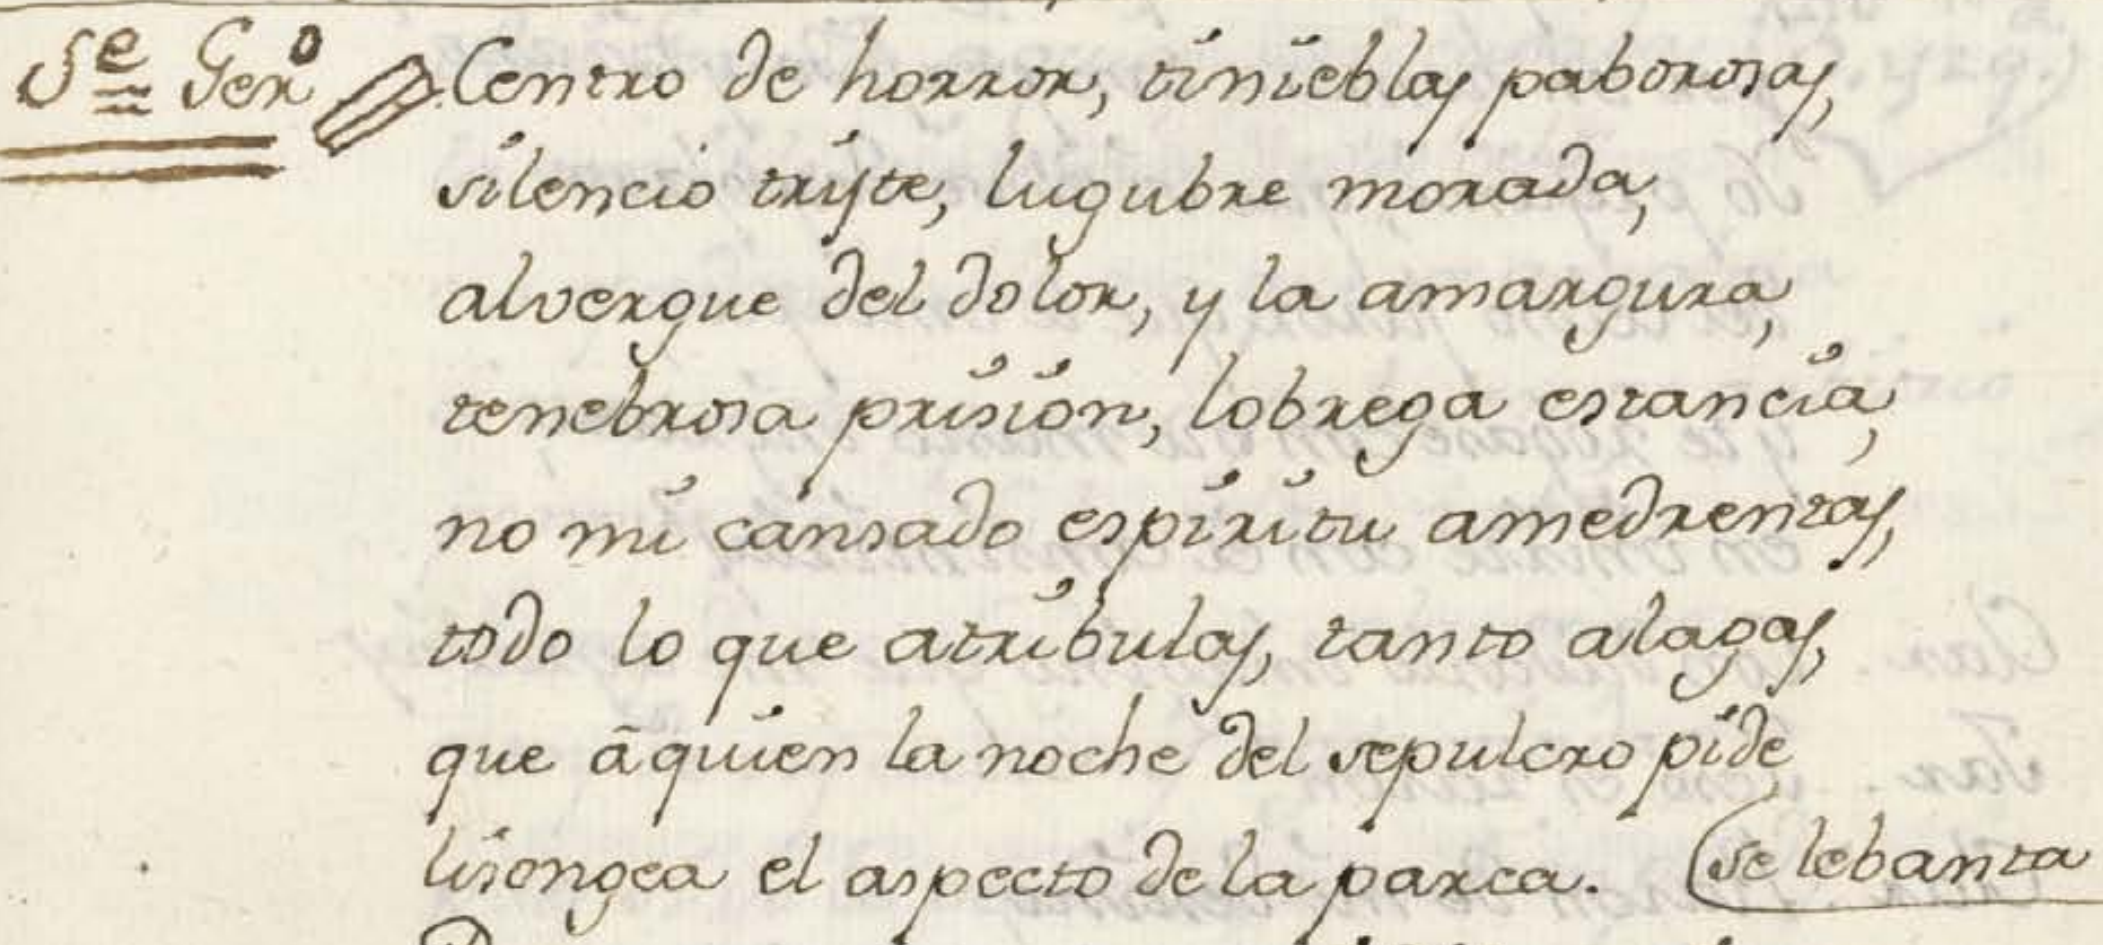 Se Gero Centro de horror, tinieblas paborosas,
silencio triste, lugubre morada,
alvergue del dolor, y la amargura,
tenebrosa prision, lobrega estancia,
no mi cansado espiritu amedrentas,
todo lo que atribulas, tanto alagas,
que ā quien la noche del sepulcro pide
lisongea el aspecto de la parca. (se lebanta